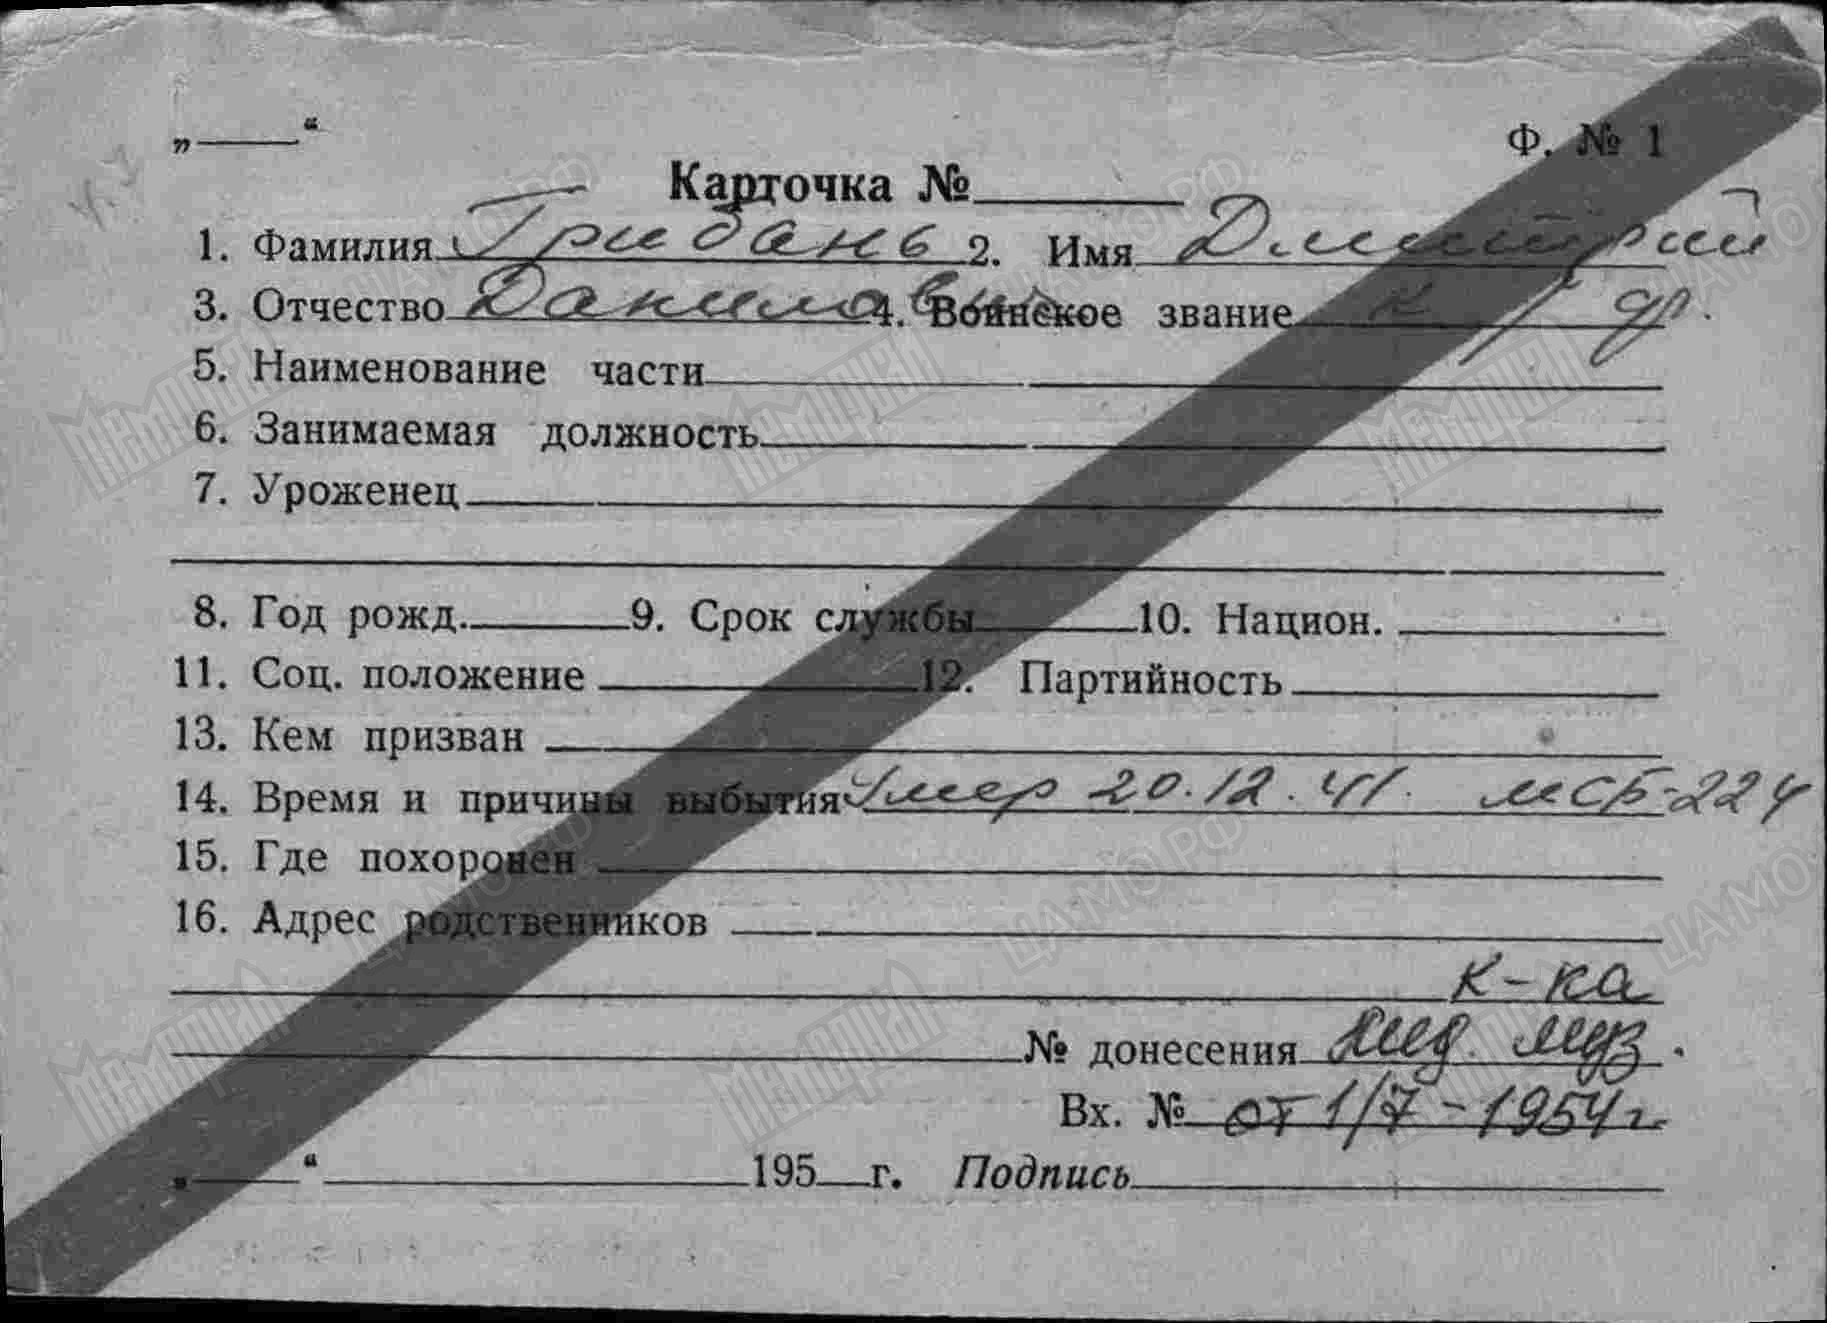 „ “
Ф. № 1
Карточка №
1. Фамилия Грибань 2. Имя Дмитрий
3. Отчество Данилович 4. Воинское звание к/ фр.
5. Наименование части
6. Занимаемая должность
7. Уроженец
8. Год рожд. 9. Срок службы 10. Национ.
11. Соц. положение 12. Партийность
13. Кем призван
14. Время и причины выбытия Умер 20.12.41. МСБ-224
15. Где похоронен
16. Адрес родственников
к-ка
№ донесения муз.
Вх. № от 1/7-1954 г.
„ “ 195 г. Подпись